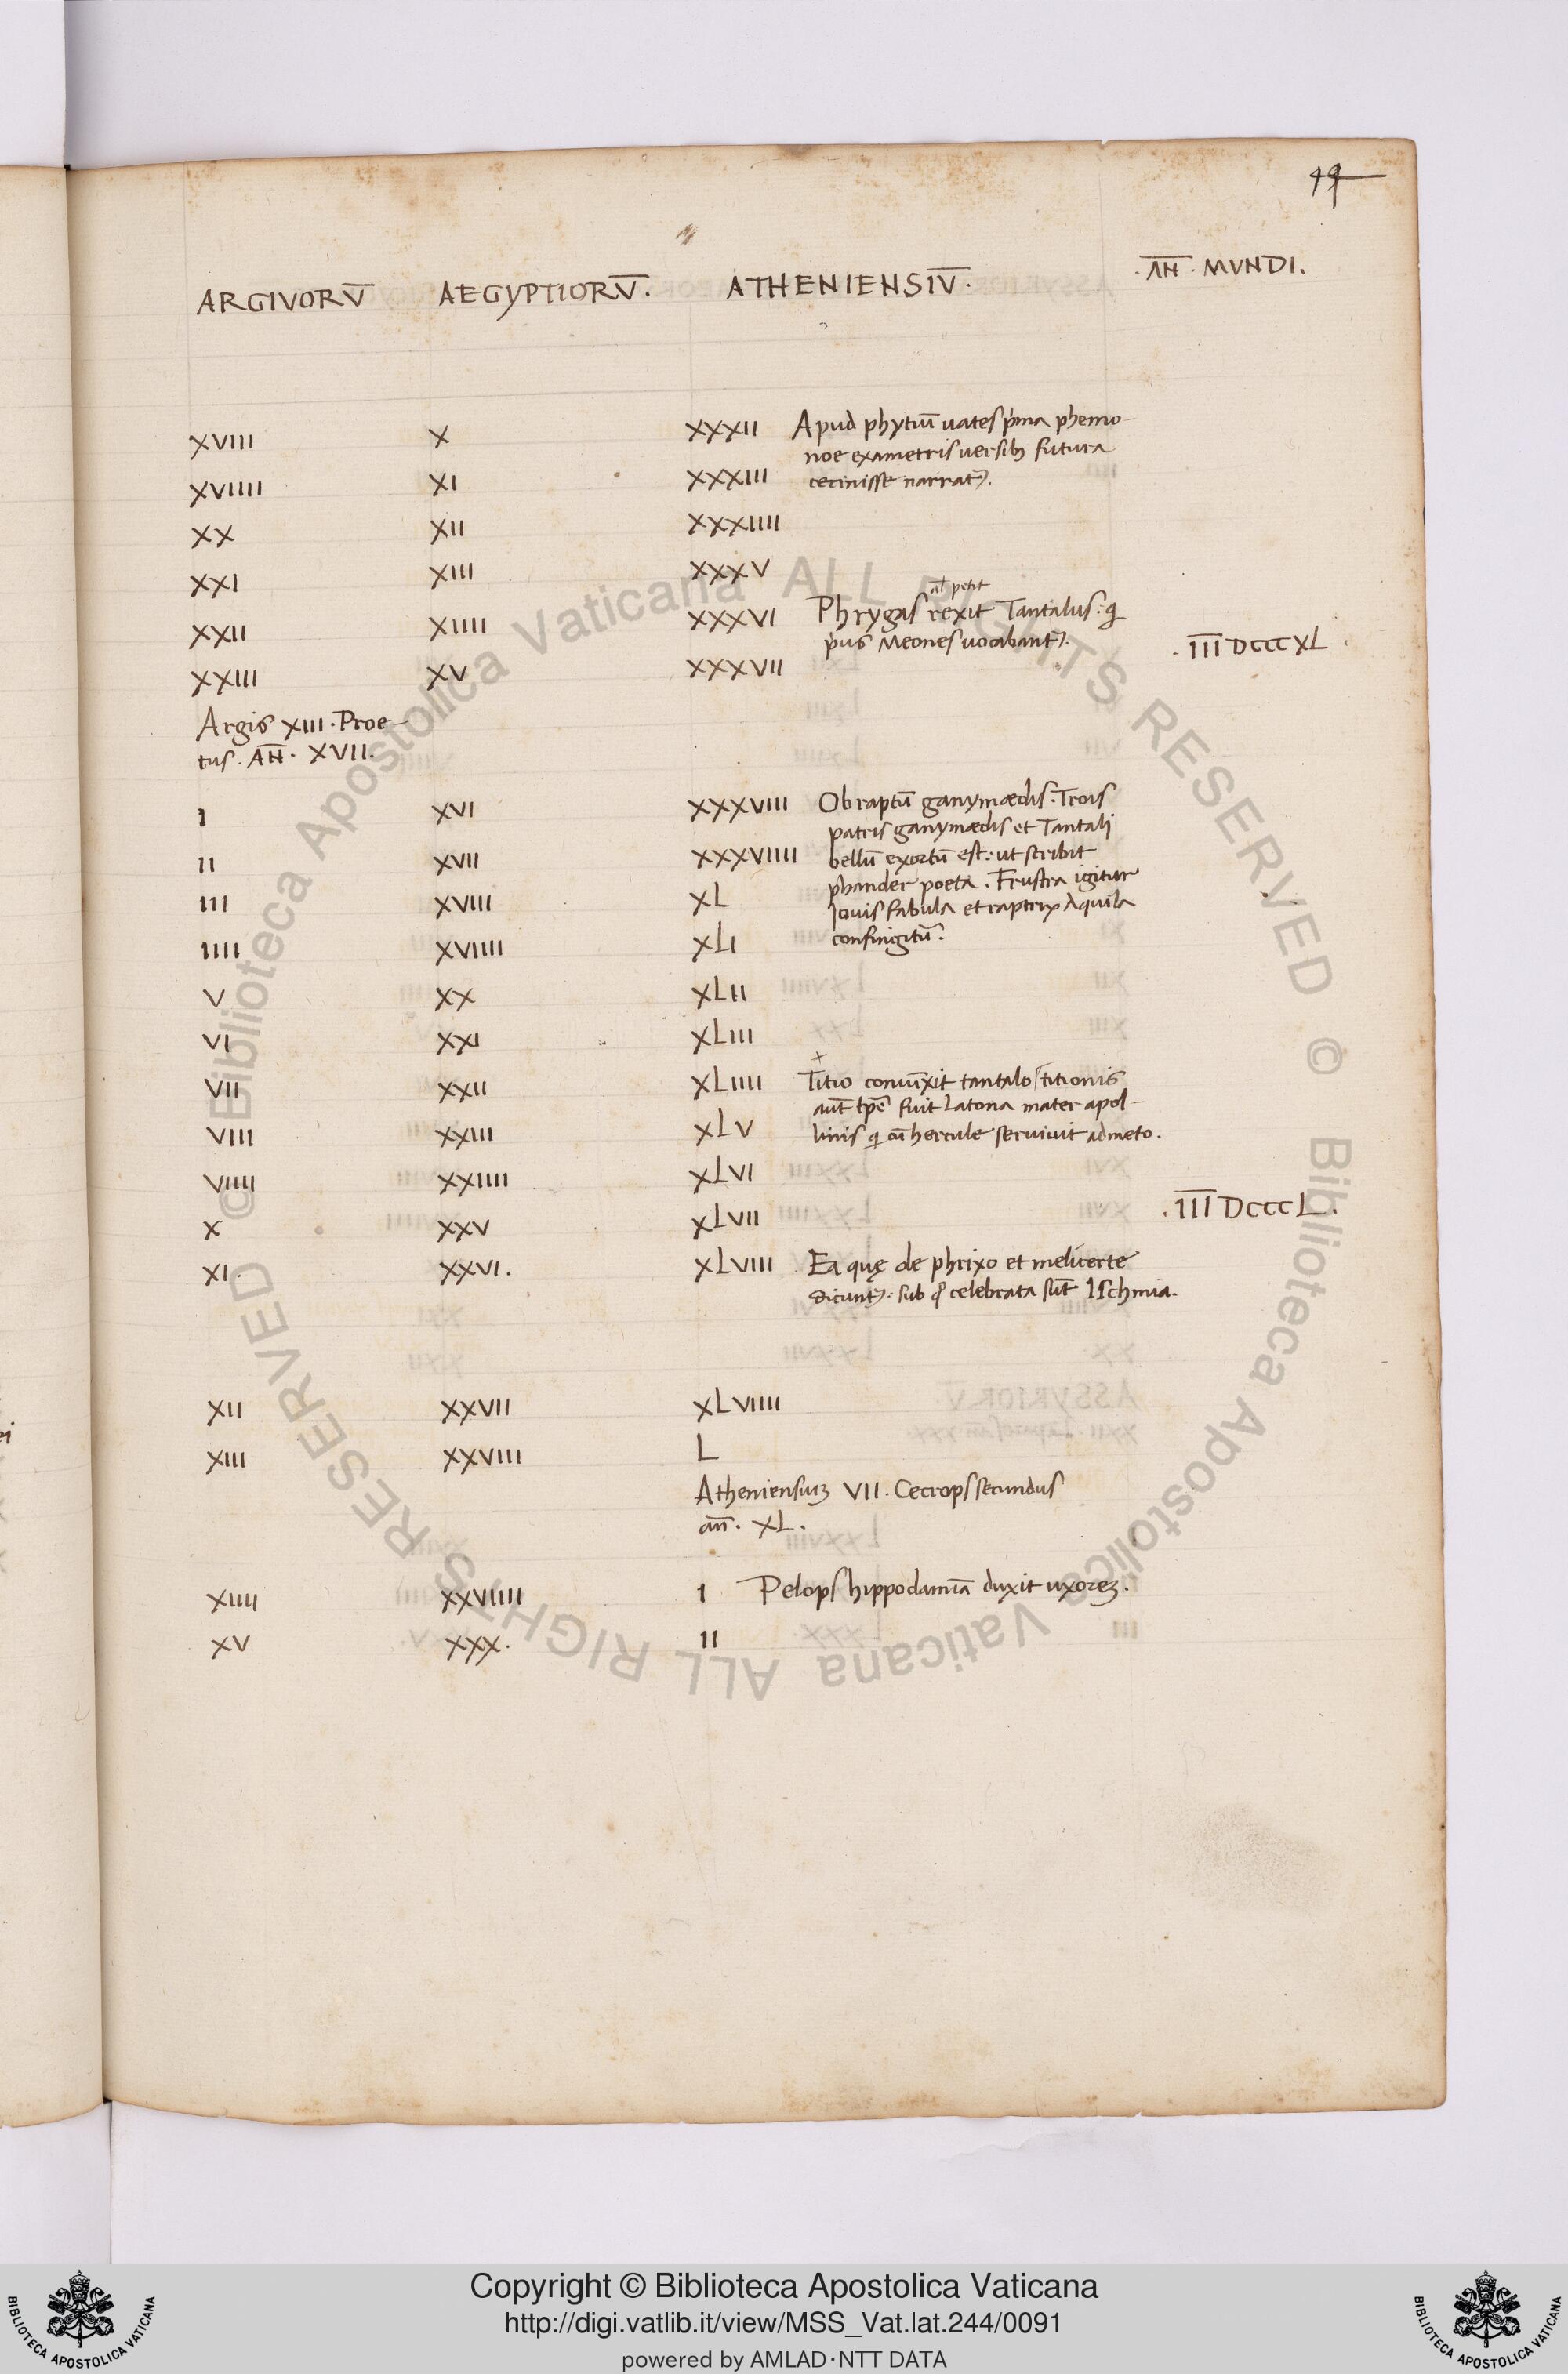 19
ARGIVORV̅ AEGYPTIORV̅. ATHENIENSIV̅. .A̅N̅. MVNDI.
XVIII X XXXII Apud phytiū uates p̍ma phemo-
noe exametris uersib; futura
XVIIII XI XXXIII cecinisse narrat᷑.
XX XII XXXIIII
XXI XIII XXXV
al̄ petit
XXII XIIII XXXVI Phrygas rexit Tantalus: q̍
p̍us Meones uocabant᷑.
.I̅I̅I̅ DCCCXL.
XXIII XV XXXVII
Argis XIII. Proe-
tus. A̅N̅. XVII.
I XVI XXXVIII Ob raptū ganymædis: Trois
patris ganymædis et Tantali
II XVII XXXVIIII bellū exortū est: ut scribit
phander poeta. Frustra igitur
III XVIII XL Iouis fabula et raptrix Aquila
IIII XVIIII XLI confingitū.
V XX XLII
VI XXI XLIII
+
VII XXII XLIIII Titio coniūxit tantalo titionis
aut̄ tp̄e fuit Latona mater apol-
VIII XXIII XLV linis q̍ cū hercule seruiuit admeto.
VIIII XXIIII XLVI
X XXV XLVII .I̅I̅I̅ DCCCL.
XI. XXVI. XLVIII Ea quę de phrixo et melicerte
dicunt᷑. sub q° celebrata sūt Ischmia.
XII XXVII XLVIIII
XIII XXVIII L
Atheniensiuꝫ VII. Cecrops secundus
an̄. XL.
XIIII XXVIIII I Pelops hippodamiā duxit uxoreꝫ.
XV XXX. II
Copyright © Biblioteca Apostolica Vaticana
http://digi.vatlib.it/view/MSS_Vat.lat.244/0091
powered by AMLAD·NTT DATA
BIBLIOTECA APOSTOLICA VATICANA
BIBLIOTECA APOSTOLICA VATICANA
© Biblioteca Apostolica Vaticana ALL RIGHTS RESERVED © Biblioteca Apostolica Vaticana ALL RIGHTS RESERVED